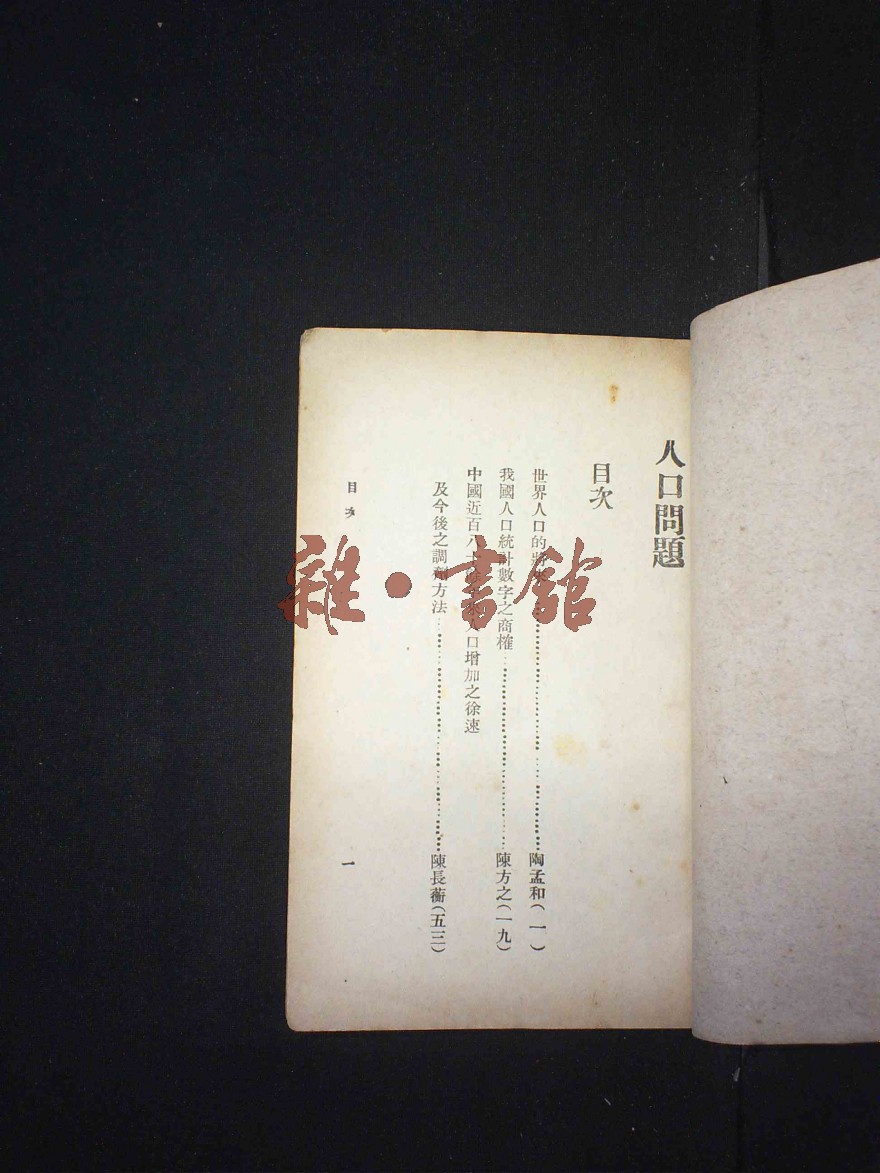 人口問題
目次
世界人口的將來……陶孟和(一)
我國人口統計數字之商榷……陳方之(一九)
中國近百八十 人口增加之徐速
及今後之調劑方法……陳長蘅(五三)
目次
一
雜·書館